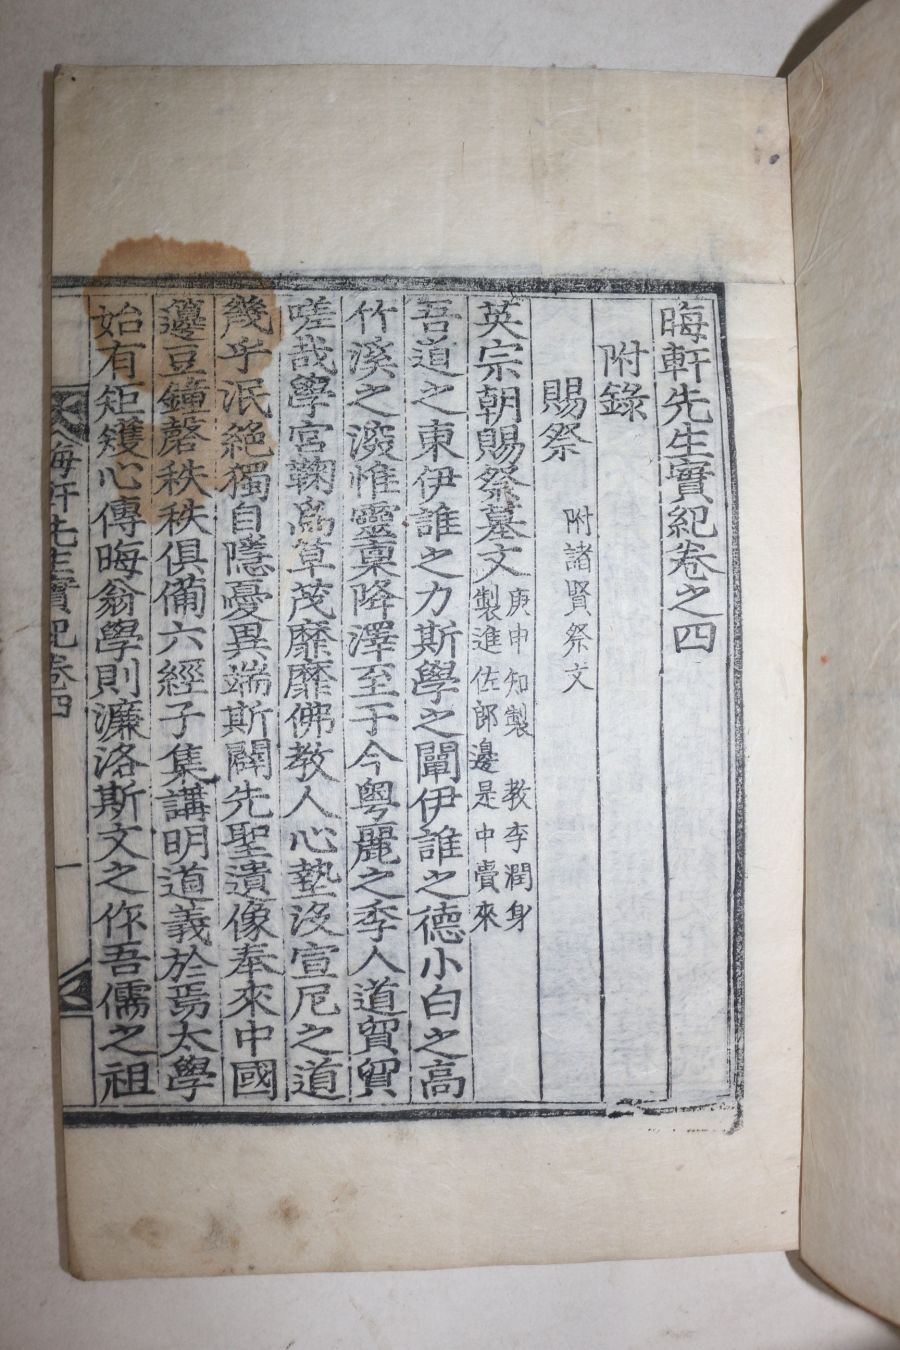 晦軒先生實紀卷之四
附錄
賜祭 附諸賢祭文
英宗朝賜祭墓文 庚申知製 教李潤身
製進佐郎邊是中賷來
吾道之東伊誰之力斯學之闡伊誰之德小白之高
竹溪之潑惟靈稟降澤至于今粤麗之季人道貿貿
嗟哉學宮鞠爲草茂靡靡佛教人心墊沒宣尼之道
幾乎泯絕獨自隱憂異端斯闢先聖遺像奉來中國
籩豆鐘磬秩秩俱備六經子集講明道義於焉太學
始有矩矱心傳晦翁學則濂洛斯文之作吾儒之祖
晦軒先生實紀卷四
一